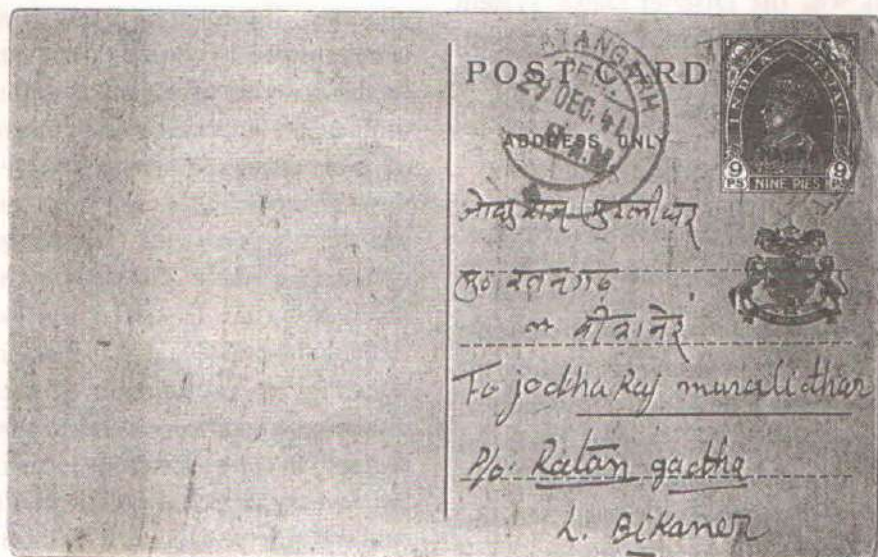 POST CARD
ATANGARH
DEL.
29 DEC. 41
ADDRESS ONLY
INDIA POSTAGE
9 PS NINE PIES 9 PS
मुरलीधर
मु० रतनगढ़
बीकानेर
To jodha Raj muralidhar
P/o. Ratan gadha
L. BiKaner